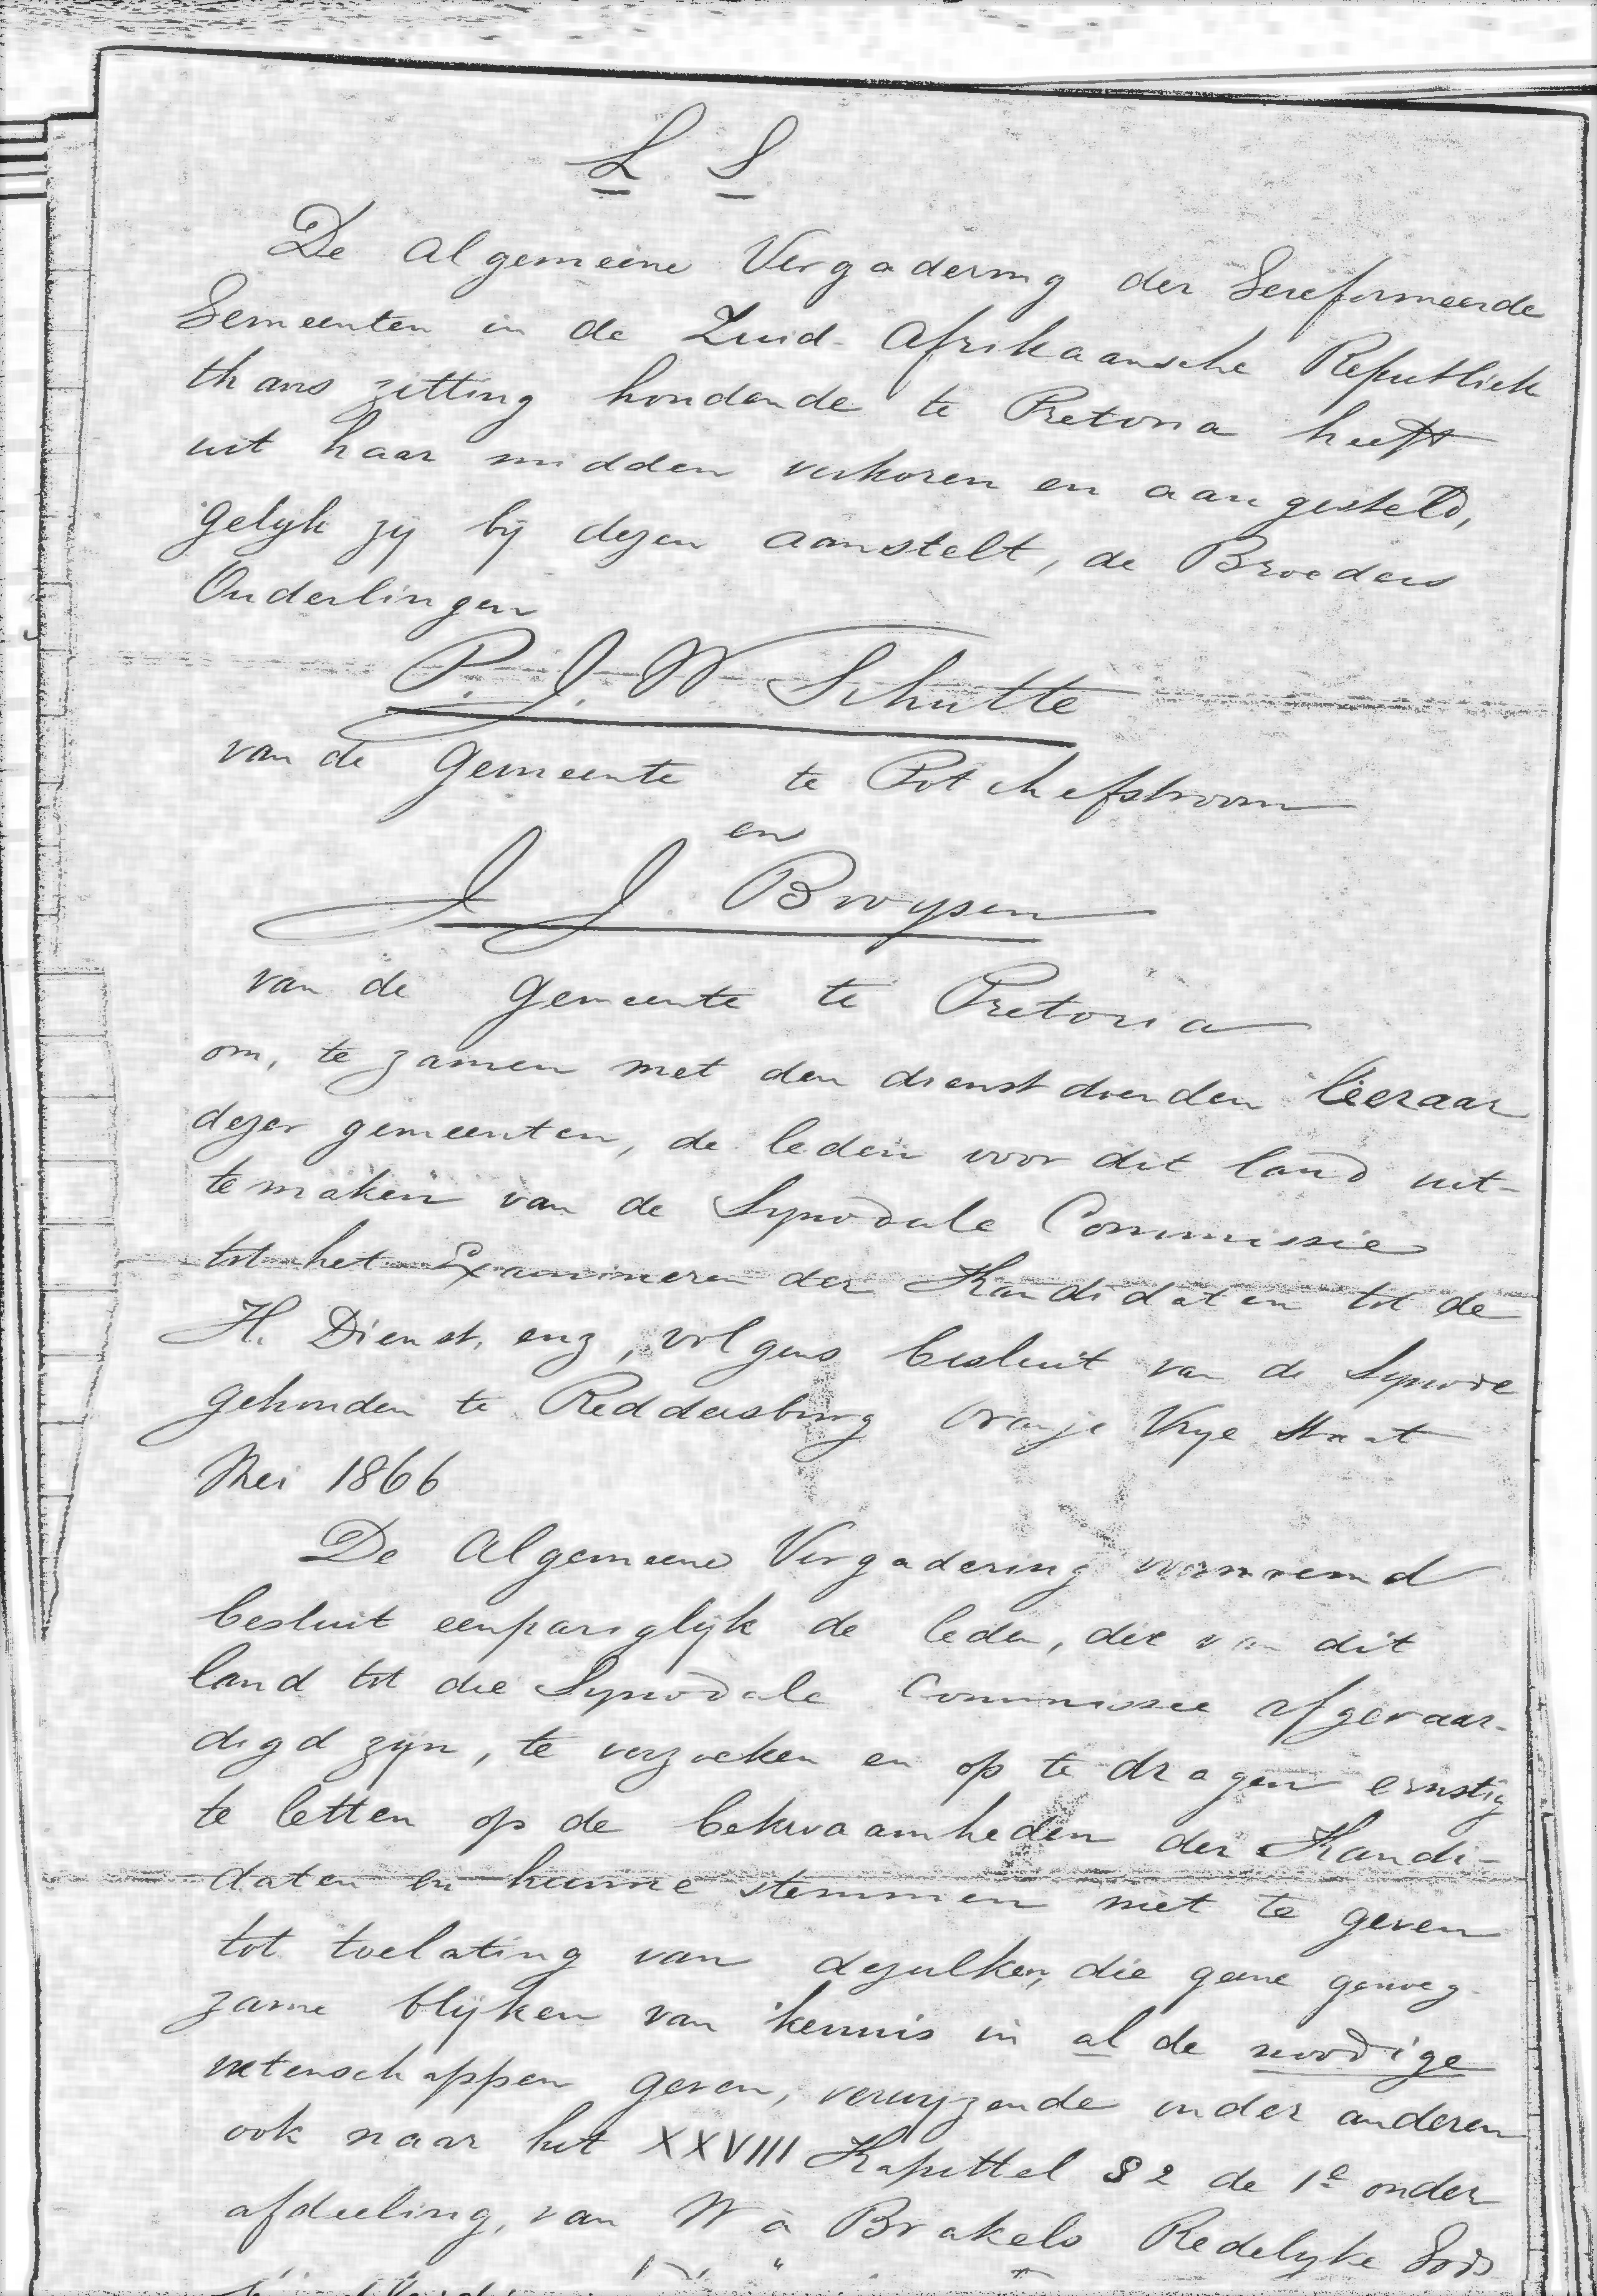 L S
De Algemeene Vergadering der Gereformeerde
Gemeenten in de Zuid-Afrikaansche Republiek
thans zitting houdende te Pretoria heeft
uit haar midden verkoren en aangesteld,
gelijk zij bij dezen aanstelt, de Broeders
Ouderlingen
P. J. W Schutte
van de Gemeente te Potchefstroom
en
J J. Bruysen
van de Gemeente te Pretoria
om, te zamen met den dienstdoenden leeraar
dezer gemeenten, de leden voor dit land uit-
temaken van de Synodale Commissie
tot het Examineren der Kandidaten tot de
H. Dienst, enz, volgens besluit van de Synode
gehouden te Reddersburg Oranje Vrye Staat
Mei 1866
De Algemeene Vergadering voornoemd
besluit eenpariglijk de leden, die van dit
land tot die Synodale Commissie afgevaar-
digd zijn, te verzoeken en op te dragen ernstig
te letten op de bekwaamheden der Kandi-
daten en hunne stemmen niet te geven
tot toelating van dezulken, die geene genoeg-
zame blijken van kennis in al de noodige
wetenschappen geven, verwyzende onder anderen
ook naar het XXVIII Kapittel § 2 de 1e onder
afdeeling, van W à Brakels Redelyke Gods